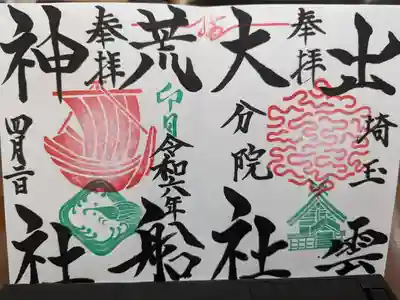 奉拝
埼玉
出雲
大社
分院
奉拝
荒船
神社
卯月
令和六年
四月二日